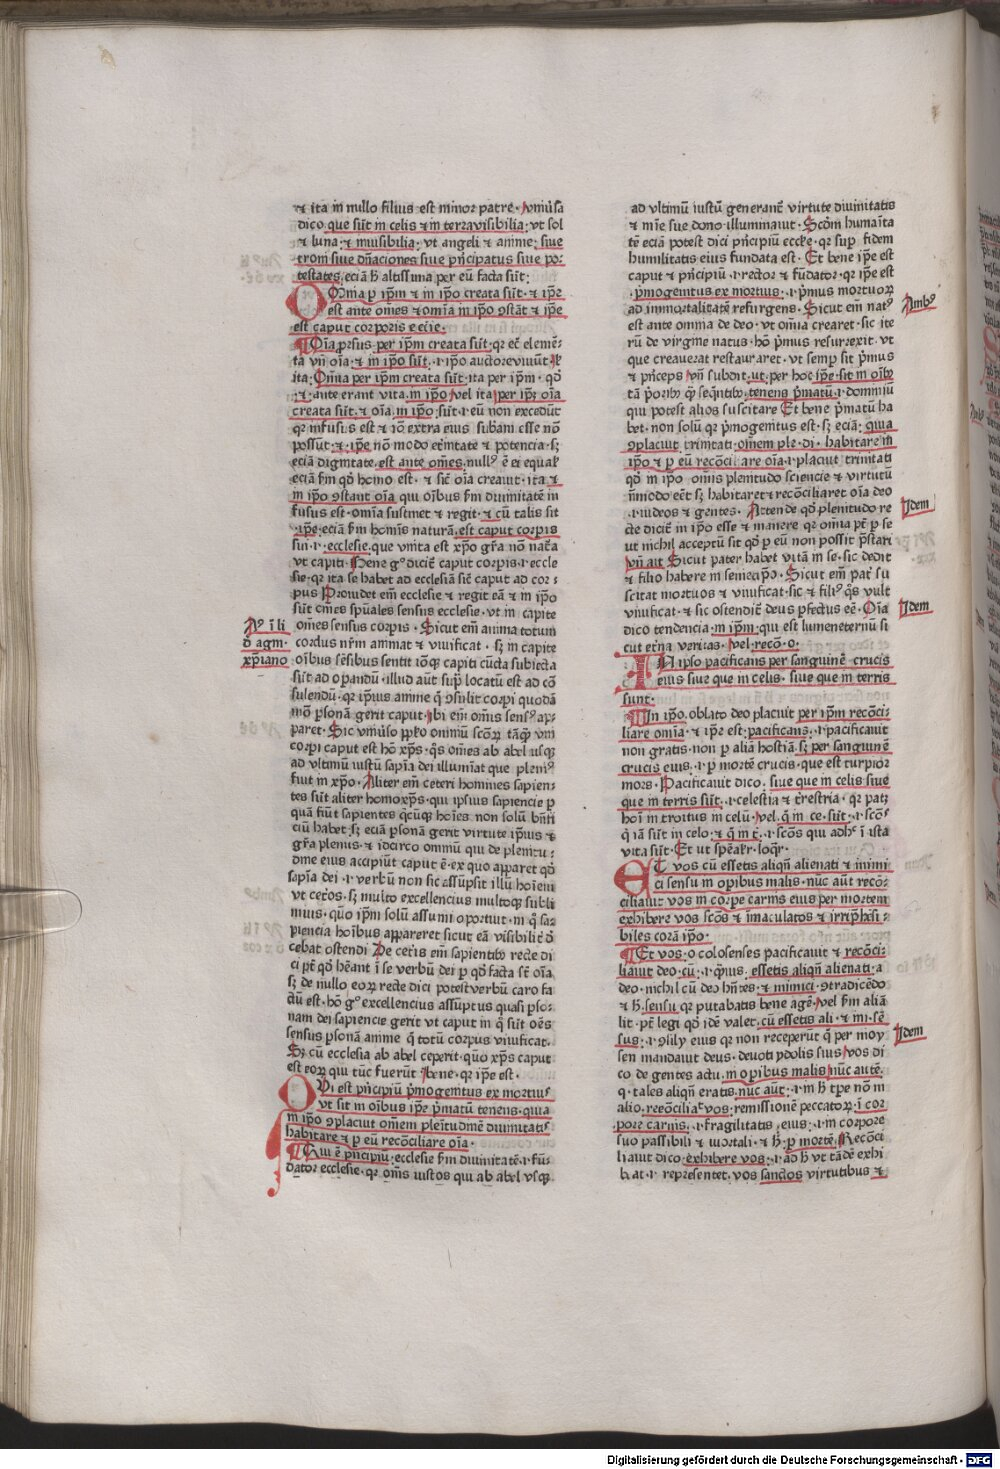 ⁊ ita in nullo filius est minor patre. vniũsa
dico que sũt in celis ⁊ in terra visibilia: vt sol
⁊ luna: ⁊ inuisibilia: vt angeli ⁊ anime: siue
troni siue dñaciones siue pñcipatus siue po-
testates. eciã h̃ altissima per eũ facta sũt:
Omĩa ꝑ ip̃m ⁊ in ip̃o creata sũt: ⁊ ip̃e
est ante om̃es ⁊ om̃ia in ip̃o ꝯstãt ⁊ ip̃e
est caput corporis eccĩe.
Oĩa ꝓrsus per ip̃m creata sũt. qr ec̃ elemẽ-
ta vñ oĩa: ⁊ in ip̃o sũt. ı. ip̃o auctore viuũt.
ita. Om̃ia per ip̃m creata sũt. ita per ip̃m. qð
⁊ ante erant vita in ip̃o vel ita per ip̃ȝ oĩa
creata sũt. ⁊ oĩa in ip̃o sũt. ı. eũ non excedũt
qr infusus est ⁊ iõ extra eius subam esse nõ
possũt: ⁊ ip̃e nõ modo et̃nitate ⁊ potencia: sȝ
eciã dignitate est ante om̃es. null⁹ ẽ ei equal̃
eciã ẜm qð homo est. ⁊ sic̃ oĩa creauit. ita ⁊
in ip̃o ꝯstant oĩa qui oĩbus ẜm diuinitatẽ in
fusus est. om̃ia sustinet ⁊ regit. ⁊ cũ talis sit
ip̃e: eciã ẜm hoĩnis naturã. est caput corpis
sui. ı. ecclesie. que vnita est xp̃o gr̃a nõ nat̃a
vt capiti. Bene g⁰ dicit̃ caput corpis. ı. eccle
sie. qr ita se habet ad ecclesiã sic̃ caput ad cor-
pus Prouidet em̃ ecclesie ⁊ regit eã ⁊ in ip̃o
sũt om̃es spũales sensus ecclesie. vt in capite
om̃es sensus corpis. Sicut em̃ anima totum
corpus nr̃m animat ⁊ viuificat. sȝ in capite
oĩbus sẽsibus sentit iõqȝ capiti cũcta subiecta
sũt ad oꝑandũ. illud aũt sup̃ locatũ est ad cõ
sulendũ. qr ip̃ius anime q̃ ꝯsulit corpi quodã
mõ ꝑsonã gerit caput. ibi em̃ om̃is sens⁹ ap-
paret. Sic vniũso pp̃ĺo omniũ scõꝝ tãqȝ vni
corpi caput est hõ xp̃s. q̃s om̃es ab abel usqȝ
ad vltimũ iustũ sapĩa dei illuminat que pleni⁹
fuit in xp̃o. Aliter em̃ ceteri homines sapien-
tes sũt aliter homo xp̃s. qui ipsius sapiencie ꝑ
quã fiũt sapientes q̃cũqȝ hoĩes non solũ bñfi
ciũ habet: sȝ eciã ꝑsonã gerit virtute ip̃ius ⁊
gr̃a plenus ⁊ idcirco omniũ qui de plenitu-
dine eius accipiũt caput ẽ. ex quo apparet qð
sapĩa dei. ı. verbũ non sic assũpsit illũ hoĩem
vt cet̃os. sȝ multo excellencius multoqȝ subli
mius. quo ip̃m solũ assumi oportuit. in q̃ sa-
piencia hoĩbus appareret sicut eã visibilit̃ d̃
cebat ostendi De cet̃is em̃ sapientibȝ recte di
ci pt̃ qð hẽant ĩ se verbũ dei ꝑ qð facta st̃ oĩa
sȝ de nullo eoꝝ recte dici potest verbũ caro fa
ctũ est. hõ g⁰ excellencius assũptus quasi ꝑso-
nam dei sapiencie gerit vt caput in q̃ sũt oẽs
sensus ꝑsonã anime q̃ totũ corpus viuificat.
Sȝ cũ ecclesia ab abel ceperit. quo xp̃s caput
est eoꝝ qui tũc fuerũt bene. qr ip̃e est.
Qui est pñcipiũ p̃mogenitus ex mortius
vt sit in oĩbus ip̃e p̃matũ tenens. quia
in ip̃o ꝯplacuit oĩnem plenitudinẽ diuinitatis
habitare ⁊ ꝑ eũ recõciliare oĩa.
Qui ẽ pñcipiũ: ecclesie ẜm diuinitatẽ. ı. fũ-
dator ecclesie. qr om̃s iustos qui ab abel vsqȝ
A⁹ ĩ li
d̃ agm̃
xp̃iano
ad vltimũ iustũ generant̃ virtute diuinitatis
⁊ mĩe sue dono illuminauit. Scõm humaĩta
tẽ eciã potest dici pñcipiũ eccl̃e. qr sup̃ fidem
humilitatis eius fundata est. Et bene ip̃e est
caput ⁊ pñcipiũ. ı. rector ⁊ fũdator. qr ip̃e est
p̃mogenitus ex mortius. ı. p̃mus mortuoꝝ
ad immortalitatẽ resurgens. Sicut em̃ nat⁹
est ante omnia de deo. vt om̃ia crearet. sic ite
rũ de virgine natus. hõ p̃mus resurrexit. vt
que creauerat restauraret. vt semp̃ sit p̃mus
⁊ pñceps vñ subdit. ut. per hoc ip̃e. sit in oĩbȝ
tã pĩoribȝ q̃ seqñtibȝ tenens p̃matũ. ı. dominiũ
qui potest alios suscitare Et bene p̃matũ ha
bet. non solũ qr p̃mogenitus est. sȝ eciã: quia
ꝯplacuit trinitati. om̃em ple. di. habitare in
ip̃o ⁊ ꝑ eũ recõciliare oĩa. ı. placuit trinitati
qð in ip̃o om̃is plenitudo sciencie ⁊ virtutũ
ĩmodo eẽt sȝ habitaret ⁊ recõciliaret oĩa deo
.ı. iudeos ⁊ gentes. Attende qð plenitudo re
cte dicit̃ in ip̃o esse ⁊ manere qr om̃ia pt̃ ꝑ se
ut nichil acceptũ sit qð ꝑ eũ non possit p̃stari
vñ ait Sicut pater habet vitã in se. sic dedit
⁊ filio habere in semetip̃o. Sicut em̃ pat̃ su
scitat mortuos ⁊ viuificat. sic ⁊ fili⁹ q̃s vult
viuificat. ⁊ sic ostendit̃ deus ꝑfectus eẽ. Oĩa
dico tendencia. in ip̃m: qui est lumen eternũ si
cut et̃na veritas. vel. recõ. o.
In ipso pacificans per sanguinẽ crucis
eius siue que in celis. siue que in terris
sunt.
In ip̃o. oblato deo placuit per ip̃m recõci-
liare om̃ia. ⁊ ip̃e est pacificans. ı. pacificauit
non gratis. non ꝑ aliã hostiã. sȝ per sanguinẽ
crucis eius. ı. ꝑ mortẽ crucis. que est turpior
mors. Pacificauit dico. siue que in celis siue
que in terris sũt. ı. celestia ⁊ t̃restria. qr patȝ
hoĩ introitus in celũ. vel. q̃ in ce. sũt. ı. scõs
q̃ iã sũt in celo: ⁊ q̃ in t̃. ı. scõs qui adh⁹ ĩ ista
vita sũt. Et ut spẽalr̃. loqr̃.
Et vos cũ essetis aliqñ alienati ⁊ inimi
ci sensu in opibus malis. nũc aũt recõ-
ciliauit vos in corpe carnis eius per mortem
exhibere vos scõs ⁊ ĩmaculatos ⁊ irrep̃hẽsi-
biles corã ip̃o.
Et vos. o colosenses pacificauit ⁊ recõci-
liauit deo. cũ. ı. q̃uis. essetis aliqñ alienati. a
deo. nichil cũ deo hñtes. ⁊ inimici ꝯtradicẽdo
⁊ h̃. sensu qr putabatis bene agẽ. vel ẜm aliã
lit. pt̃ legi qð idẽ valet. cũ essetis ali. ⁊ ini. sẽ
sus. ı. ꝯsily eius qr non receperũt q̃ per moy
sen mandauit deus. deuoti ydolis suis vos di
co de gentes actu. in opibus malis nũc autẽ
q̃. tales aliqñ eratis. nũc aut. ı. in h̃ tp̃e nõ in
alio. recõciliat̃ vos. remissionẽ peccatoꝝ. ĩ cor
pore carnis. ı. fragilitatis. eius. ı. in corpore
suo passibili ⁊ mortali. ⁊ h̃. ꝑ mortẽ. Recõci
liauit dico. exhibere vos. ı. ad h̃ vt tãdẽ exhi
beat. ı. representet. vos sanctos virtutibus ⁊
Amb⁹
Idem
Idem
Idem
Digitalisierung gefördert durch die Deutsche Forschungsgemeinschaft - DFG